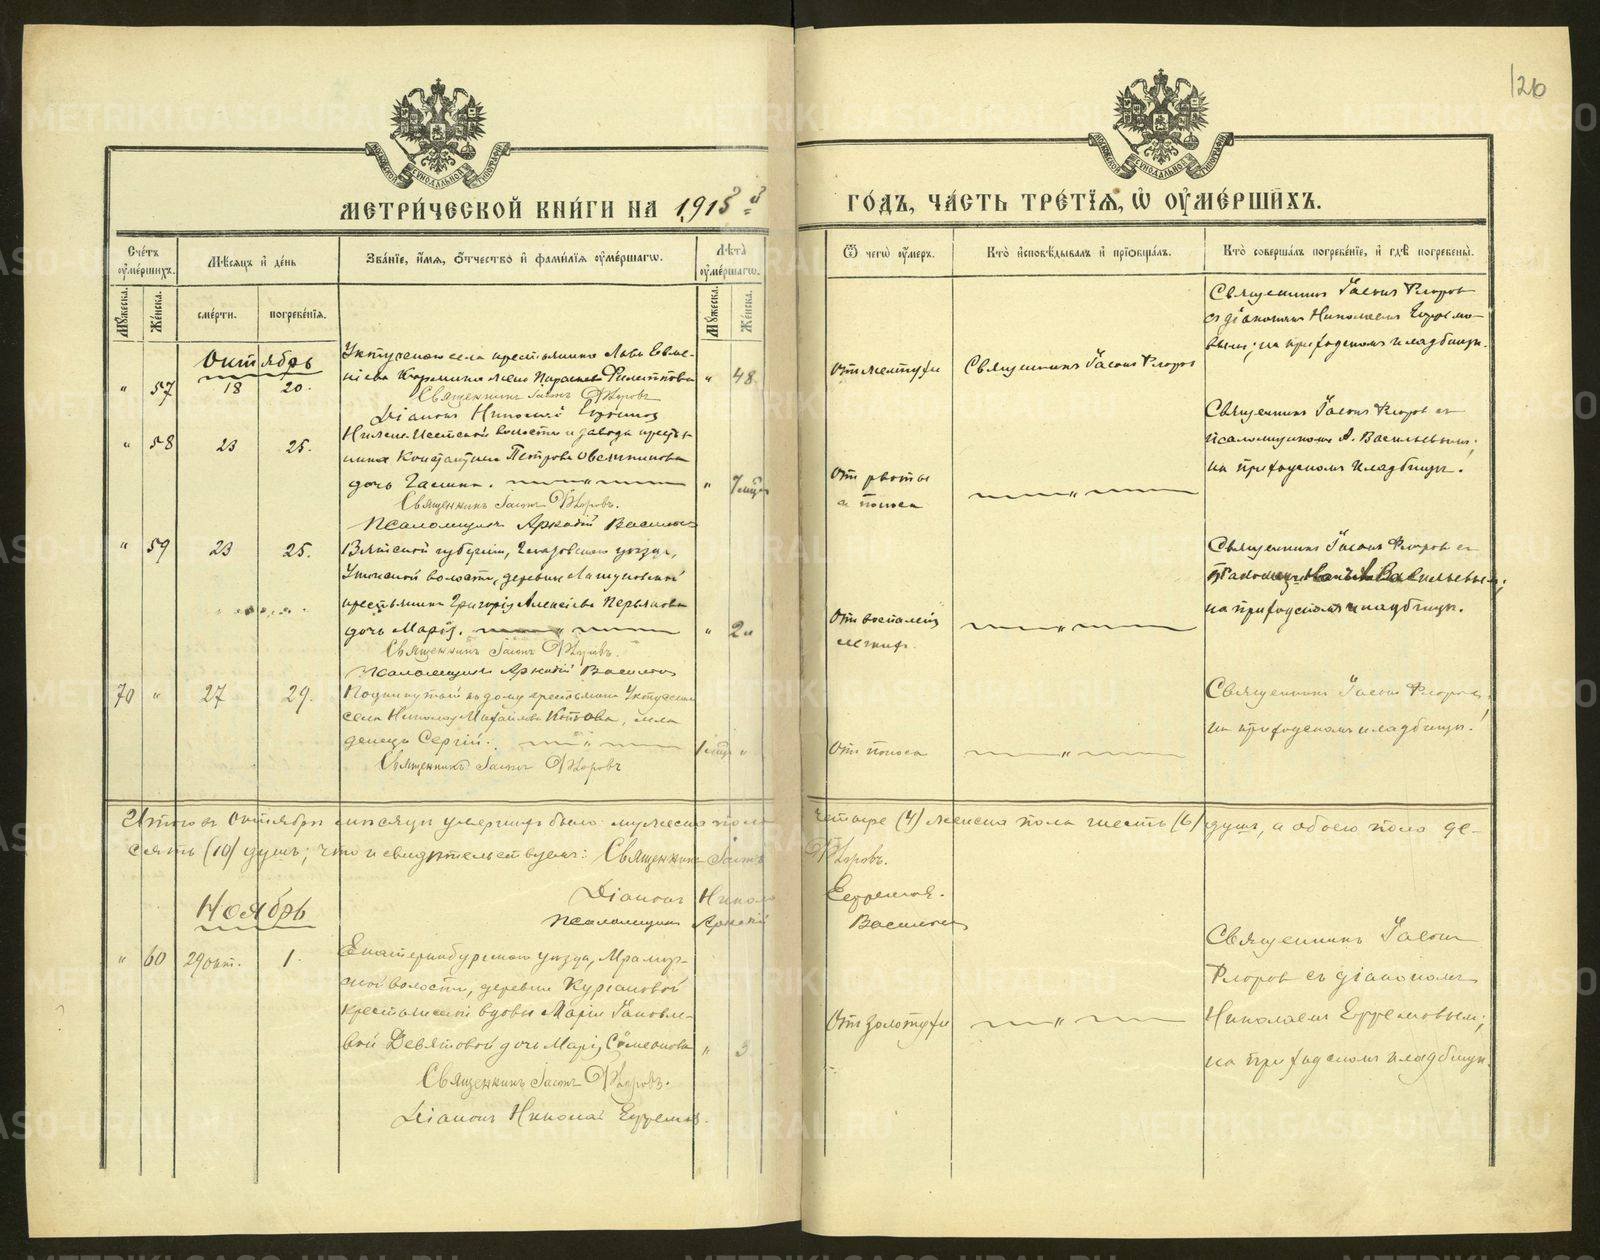 126
МОСКОВСКОЙ СѴНОДАЛЬНОЙ ТИПОГРАФІИ
МОСКОВСКОЙ СѴНОДАЛЬНОЙ ТИПОГРАФІИ
МЕТРИ́ЧЕСКОЙ КНИ́ГИ НА 1915 й
ГО́ДЪ, ЧА́СТЬ ТРЕ́ТІѦ, Ѡ҆ ОУ҆МЕ́РШИХЪ.
Сче́тъ оу҆ме́ршихъ.
Мꙋ́жеска.
Же́нска.
Мѣ́сѧцъ и҆ де́нь
сме́рти.
погребе́нїѧ.
Зва́нїе, и҆́мѧ, ѻ҆́тчество и҆ фами́лїѧ оу҆ме́ршагѡ.
Лѣ́та оу҆ме́ршагѡ.
Мꙋ́жеска.
Же́нска.
Ѿ чегѡ̀ оу҆́меръ.
Кто̀ и҆сповѣ́дывалъ и҆ прїѡбща́лъ.
Кто̀ соверша́лъ погребе́нїе, и҆ гдѣ̀ погребены̀.
Октябрь
" 57 18 20.
Уктусскаго села крестьянина
жена Параскева
" 48
Священникъ Іасонъ Флоровъ
Діаконъ Николай Ефремов
Священникъ Іасонъ Флоров
Священник Іасон Флоров
с діаконом Николаем Ефремо-
вым; на приходском кладбищѣ.
" 58 23 25.
Нижне-Исетской волости и завода кресть-
янина Константина Петрова Овчинникова
дочь Галина.
" 7 мѣс
Священникъ Іасонъ Флоровъ.
Псаломщик Аркадій Васильев
От рвоты
и поноса
Священник Іасон Флоров с
псаломщиком А. Васильевым;
на приходском кладбищѣ.
" 59 23 25.
Вятской губерніи, Глазовскаго уѣзда,
волости, деревни
крестьянина Григорія Алексѣева
дочь Марія.
" 2 "
Священникъ Іасонъ Флоровъ.
Псаломщик Аркадій Васильев
От воспаленія
легких
Священник Іасон Флоров с
А. Васильевым;
на приходском кладбищѣ.
70 " 27 29.
Подкинутый къ дому крестьянина Уктусскаго
села Николая Михайлова Котова, мла-
денец Сергій.
1 мѣс "
Священникъ Іасонъ Флоровъ
От поноса
Священник Іасон Флоров,
на приходском кладбищѣ.
Итого в Октябрѣ мѣсяцѣ умерших было: мужеска пола четыре (4) женска пола шесть (6) душ, а обоего пола де-
сять (10) душ; что и свидѣтельствуем: Священникъ Іасонъ Флоровъ.
Діаконъ Николай Ефремов.
Псаломщик Аркадій Васильев
Ноябрь
" 60 29 окт. 1.
Екатеринбургскаго уѣзда, Мрамор-
ской волости, деревни Кургановой
крестьянской вдовы Маріи Іаковле-
вой Девятовой дочь Марія Симеонова
" 3
Священникъ Іасонъ Флоровъ.
Діаконъ Николай Ефремов.
От золотухи
Священникъ Іасон
Флоров съ діаконом
Николаем Ефремовым;
на приходском кладбищѣ.
METRIKI.GASO-URAL.RU